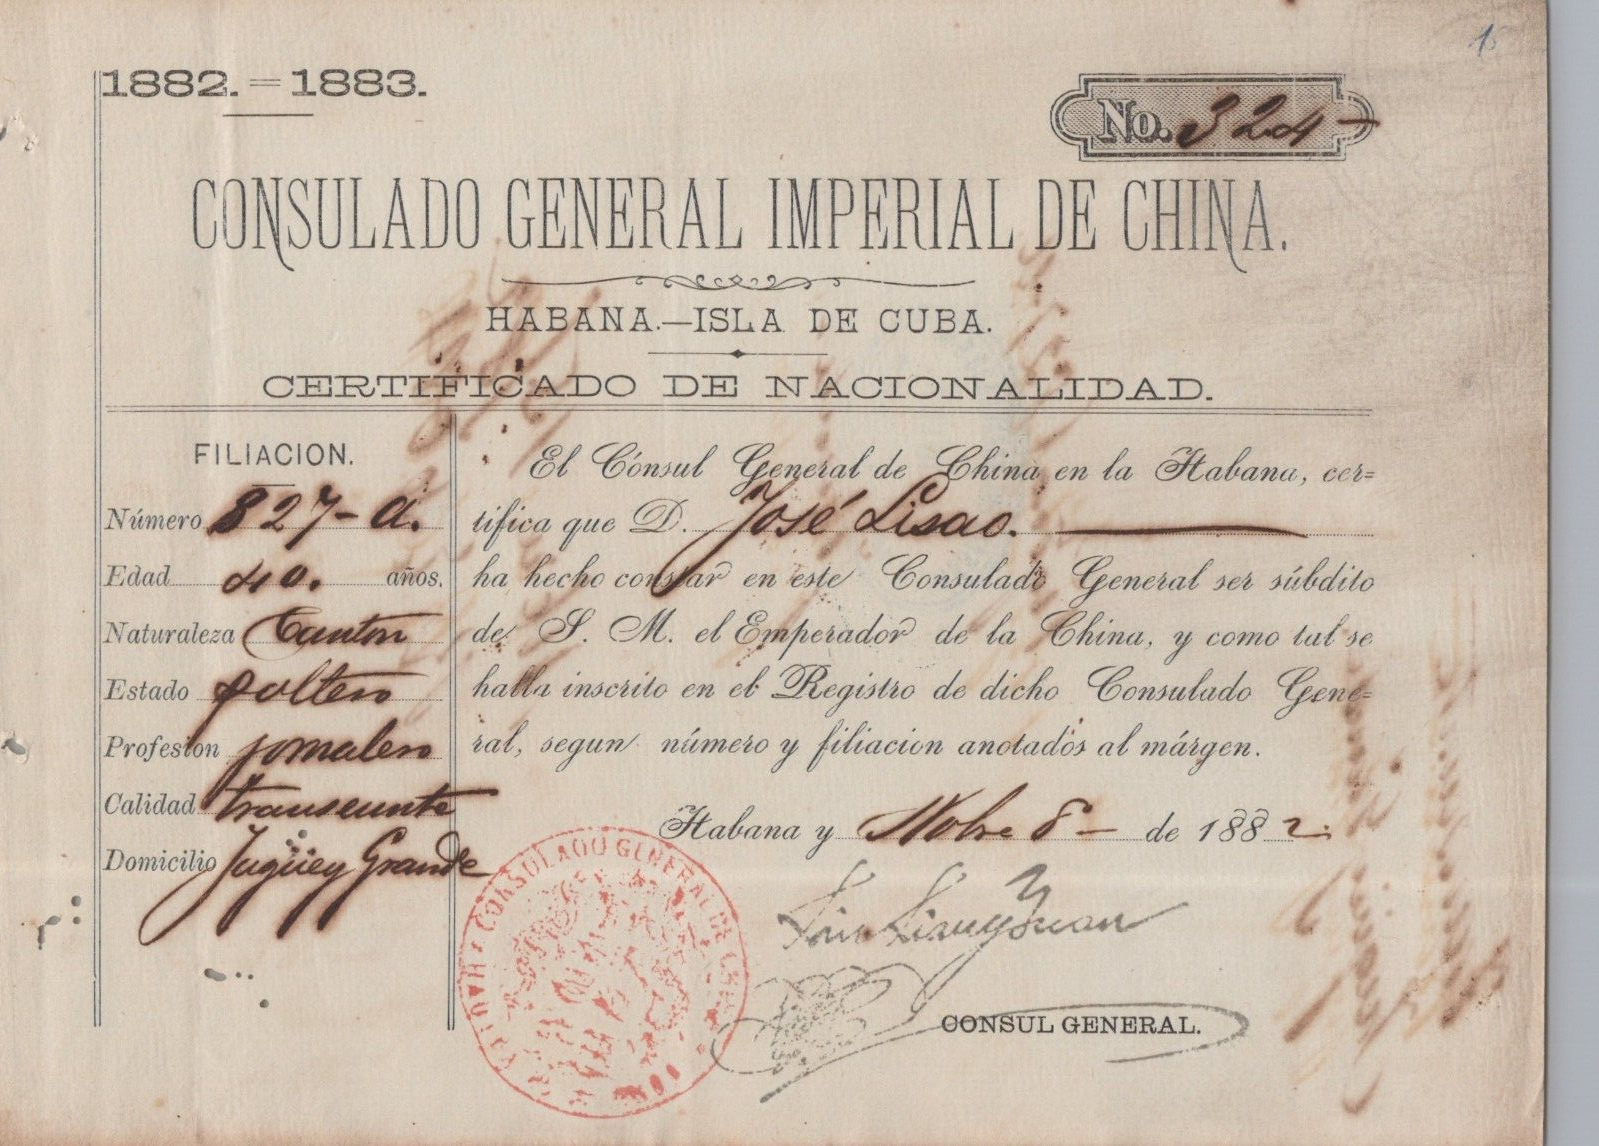 15
1882.=1883.
No. 324-
CONSULADO GENERAL IMPERIAL DE CHINA.
HABANA.—ISLA DE CUBA.
CERTIFICADO DE NACIONALIDAD.
FILIACION.
Número 827-A.
Edad 40. años.
Naturaleza Canton
Estado soltero
Profesion jornalero
Calidad transeunte
Domicilio Jugüey Grande
El Cónsul General de China en la Habana, cer=
tifica que D. José Lisao.
ha hecho constar en este Consulado General ser súbdito
de S. M. el Emperador de la China, y como tal se
halla inscrito en el Registro de dicho Consulado Gene=
ral, segun número y filiacion anotados al márgen.
Habana y Nobre 8- de 1882.
Liu Liang Yuan
CONSUL GENERAL.
CONSULADO GENERAL DE CHINA